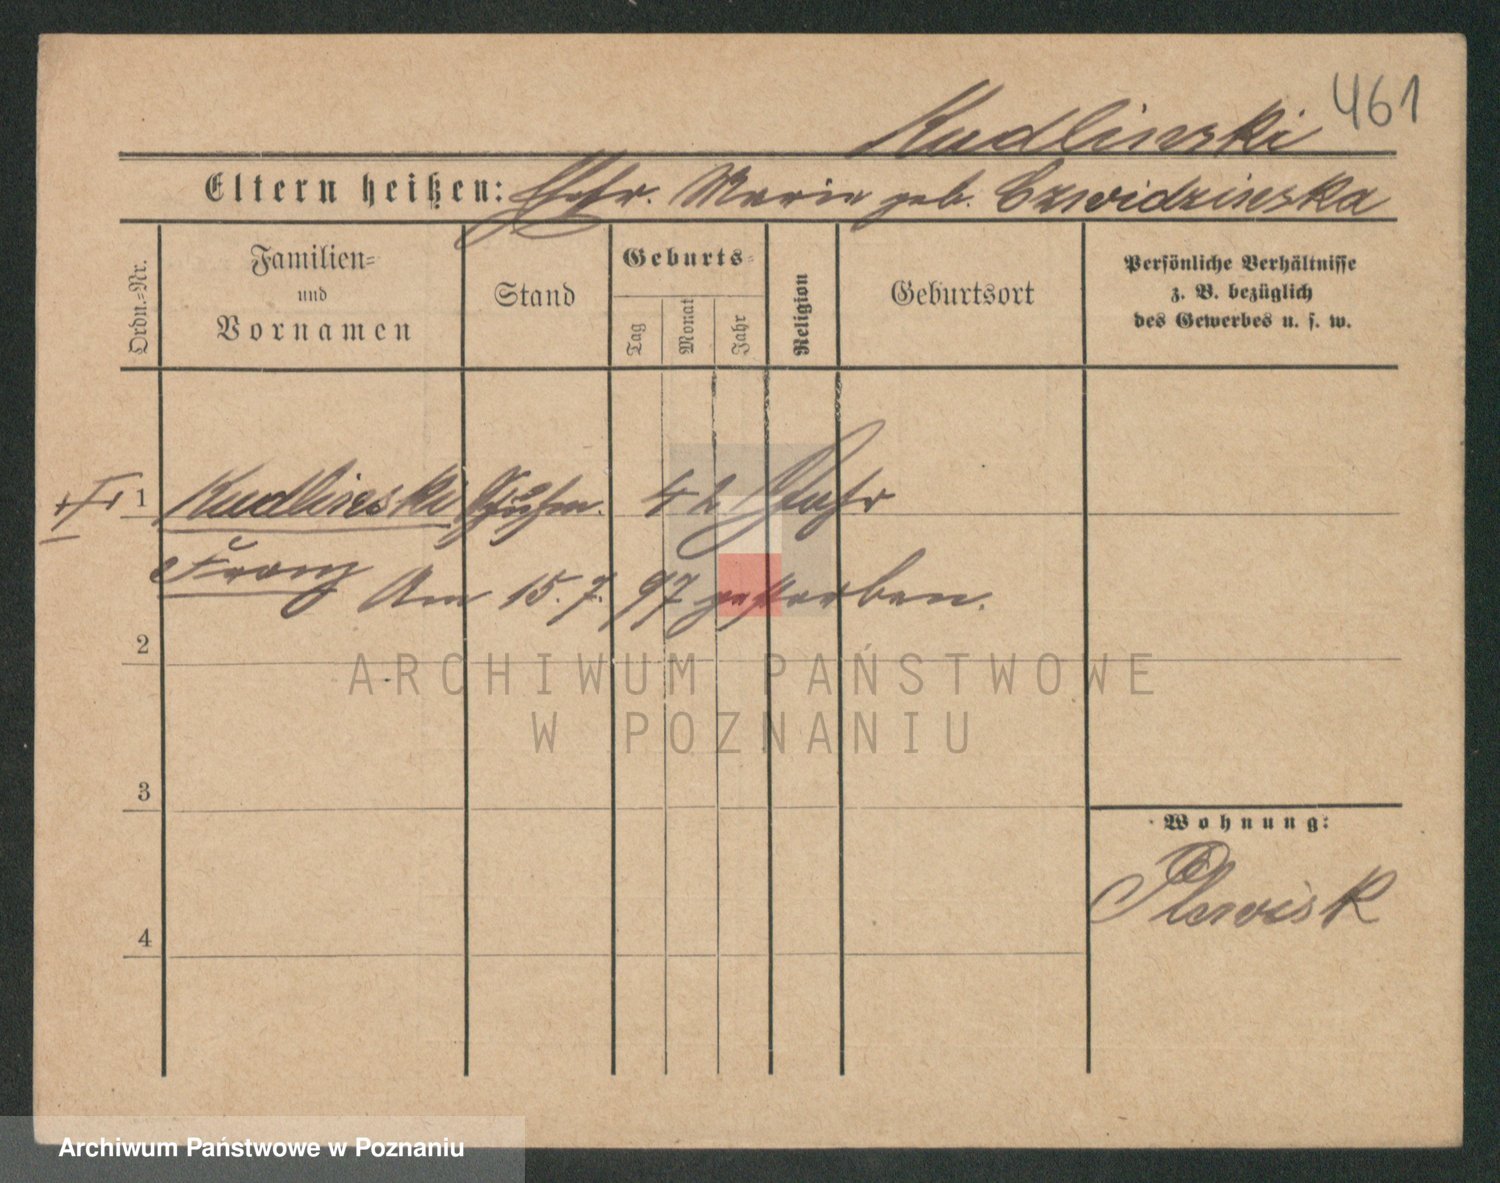 461
Kudlinski
Eltern heißen: Ehefr. Marie geb. Czwidzinska
Ordn.=Nr.
Familien=
und
Vornamen
Stand
Geburts=
Tag
Monat
Jahr
Religion
Geburtsort
Persönliche Verhältnisse
z. B. bezüglich
des Gewerbes u. s. w.
1 Kudlinski 42 Jahr
Franz
Am 15. 7. 97 gestorben.
2
ARCHIWUM PAŃSTWOWE
W POZNANIU
3
Wohnung:
Plewisk
4
Archiwum Państwowe w Poznaniu